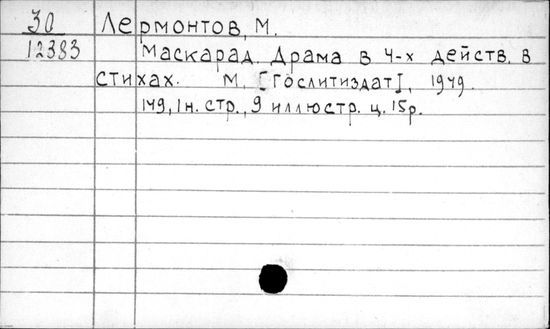 30
12383
Лермонтов, М.
Маскарад. Драма в 4-х действ. в
стихах. М. [Гослитиздат], 1949.
149, 1 н. стр., 9 иллюстр. ц. 15р.